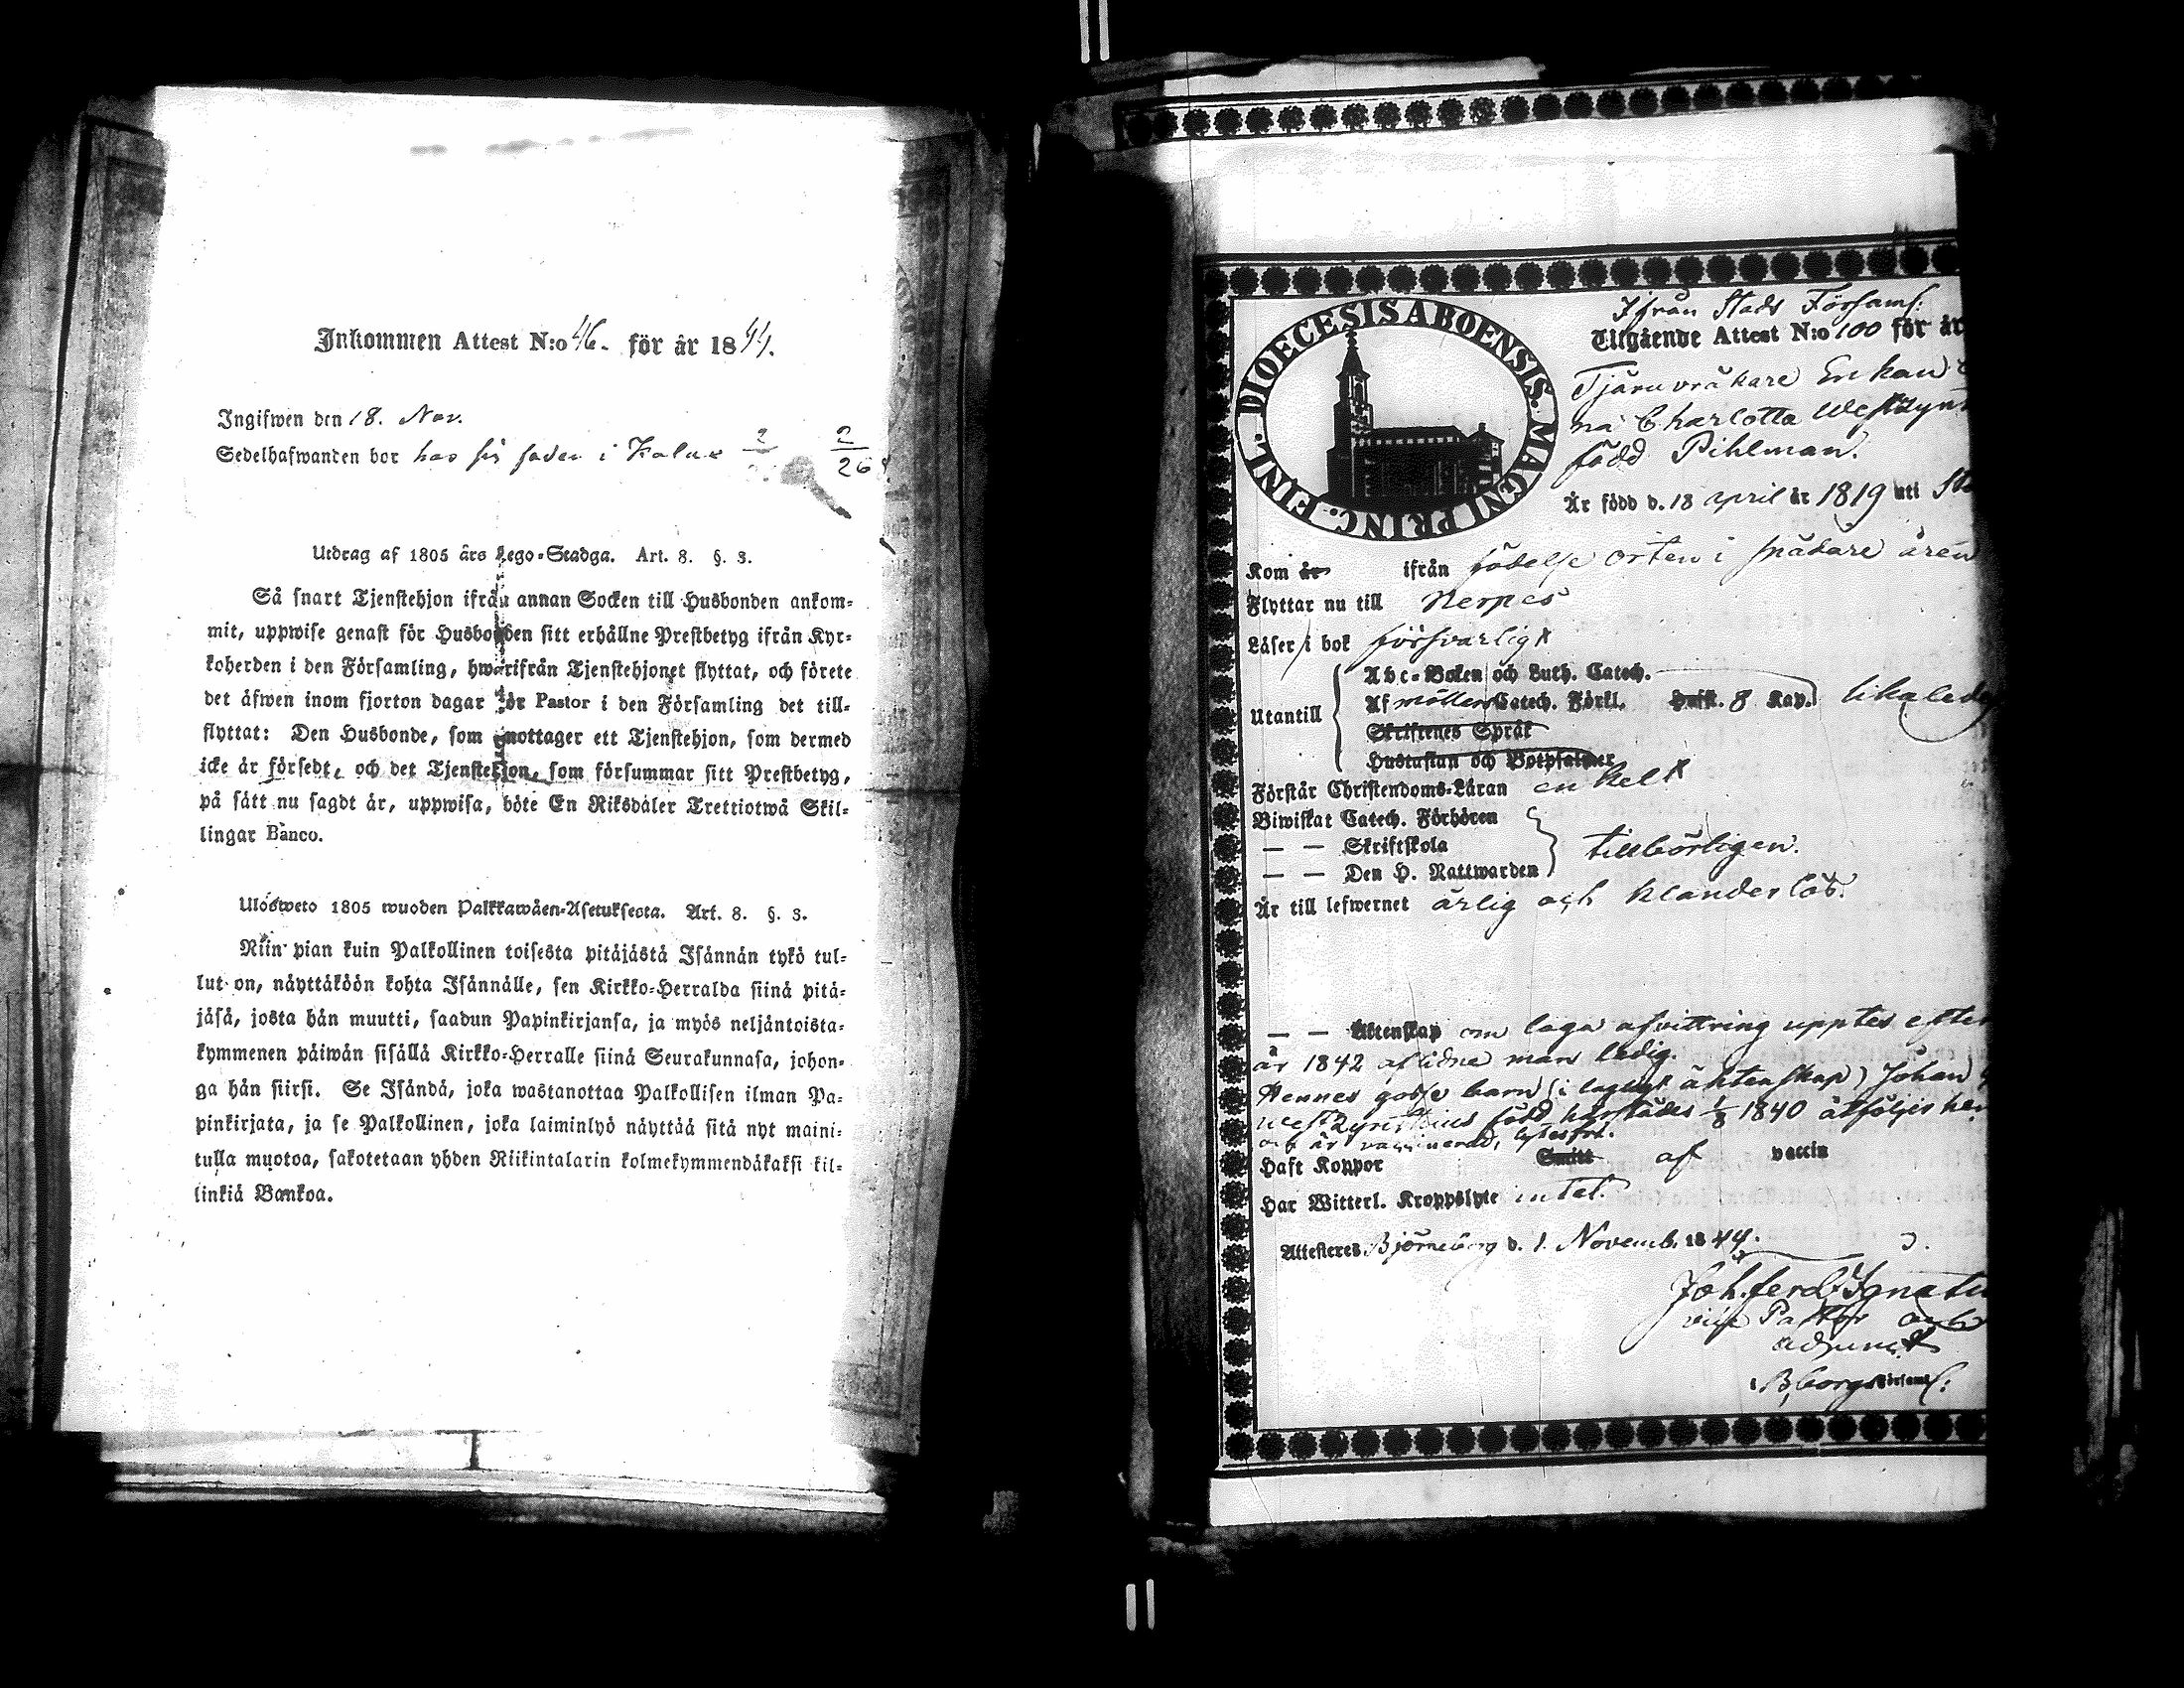 Inkommen Attest N:o 46. för år 1844.
Ingifwen den 18. Nov.
Sedelhafwanden bor hos sin fader i Kalax 2/26
Utdrag af 1805 års Lego-Stadga. Art. 8. §. 3.
Så snart Tjenstehjon ifrån annan Socken till Husbonden ankom-
mit, uppwise genast för Husbonden sitt erhållne Prestbetyg ifrån Kyr-
koherden i den Församling, hwarifrån Tjenstehjonet flyttat, och förete
det äfwen inom fjorton dagar för Pastor i den Församling det till-
flyttat: Den Husbonde, som emottager ett Tjenstehjon, som dermed
icke är försedt, och det Tjenstehjon, som försummar sitt Prestbetyg,
på sätt nu sagdt är, uppwisa, böte En Riksdaler Trettiotwå Skil-
lingar Banco.
Ulosweto 1805 wuoden Palkkawäen-Asetuksesta. Art. 8. §. 3.
Niin pian kuin Palkollinen toisesta pitäjästä Isännän tykö tul-
lut on, näyttäköön kohta Isännälle, sen Kirkko-Herralda siinä pitä-
jäsä, josta hän muutti, saadun Papinkirjansa, ja myös neljäntoista-
kymmenen päiwän sisällä Kirkko-Herralle siinä Seurakunnasa, johon-
ga hän siirsi. Se Isändä, joka wastanottaa Palkollisen ilman Pa-
pinkirjata, ja se Palkollinen, joka laiminlyö näyttää sitä nyt maini-
tulla muotoa, sakotetaan yhden Riikintalarin kolmekymmendäkaksi kil-
linkiä Bankoa.
DIOECESIS ABOENSIS. MAGNI PRINC. FINL.
Ifrån Stads Församl:
Utgående Attest N:o 100 för år
Tjäruvräkare Enkan
na Charlotta
född Pihlman.
Är född d. 18 april år 1819 uti
Kom år ifrån födelse orten i spädare åren
Flyttar nu till Nerpes
Läser i bok försvarligt
Utantill
Abc-Boken och Luth. Catech.
Af möllers Catech. Förkl. 8 Kap. likaledes
Skriftenes Språk
Hustaflan och Botpsalmer
Förstår Christendoms-Läran enkelt
Biwistat Catech. Förhören
— — Skriftskola tillbörligen.
— — Den H. Nattwarden
Är till lefwernet ärlig och klanderlös.
— — Äktenskap om laga afvittring upptes efter
år 1842 aflidne man ledig.
Hennes gosse barn (i lagligt äktenskap) Johan
född härstädes 1/8 1840 åtföljer
och är vaccinerad, lytesfri.
Haft Koppor Smitt af vaccin
Har Witterl. Kroppslyte intet.
Attesteres Björneborg d. 1. Novemb. 1844.
Joh. Ferd. Ignatius
vice Pastor
adjunct
i B,borgs Församl: